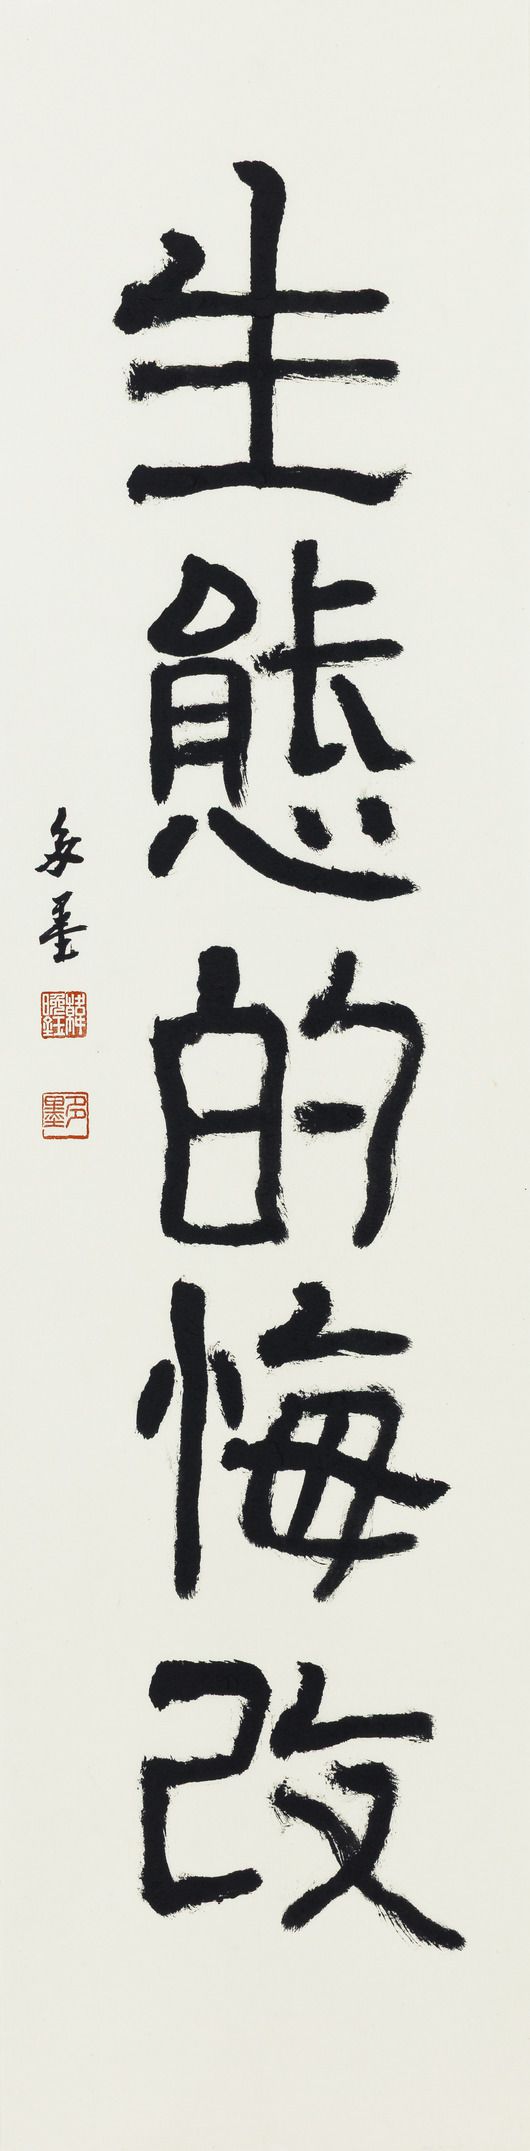 生態的悔改
多墨